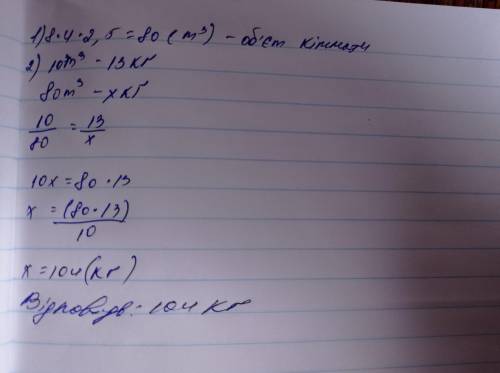 1) 8·4·2,5=80 (m³) - об'єм кімнати
2) 10m³ - 13 кг
80m³ - x кг
10/80 = 13/x
10x=80·13
x = (80·13)/10
x=104(кг)
Відповідь: 104 кг